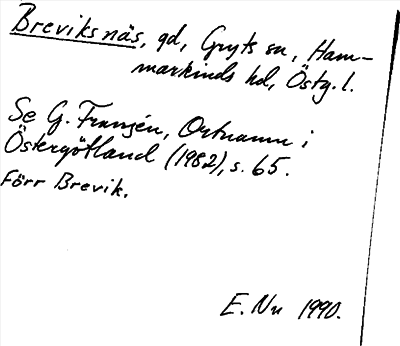 Breviksnäs, gd, Gryts sn, Ham-
markinds hd, Östg. l.
Se G. Franzén, Ortnamn i
Östergötland (1982), s. 65.
Förr Brevik.
E. Nu 1990.